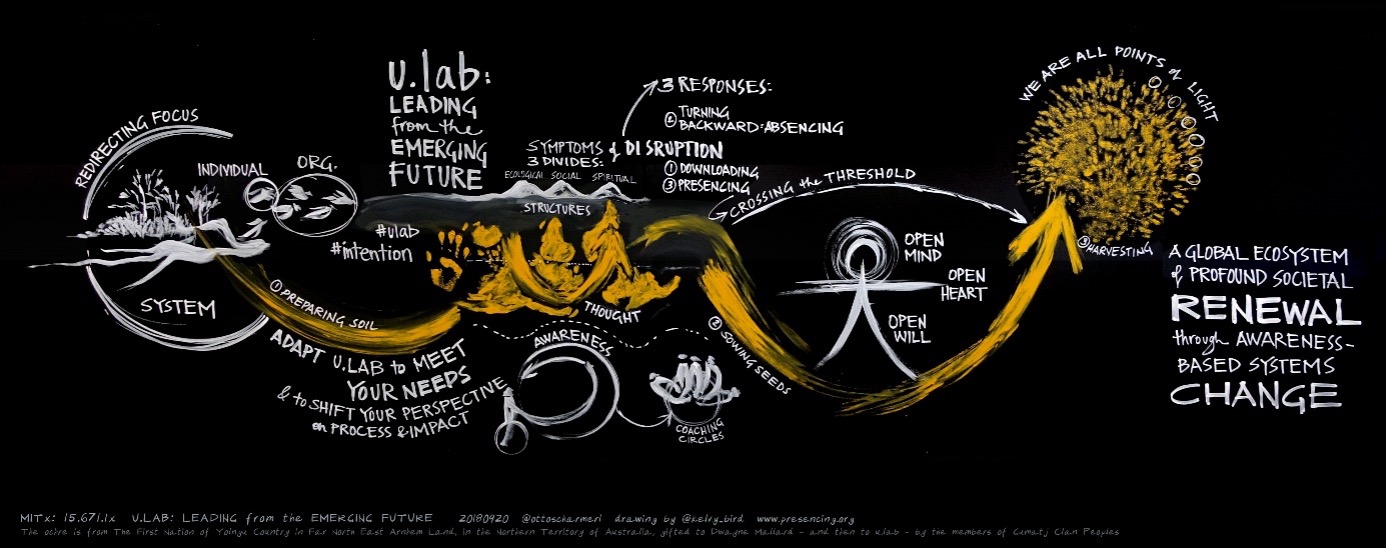 REDIRECTING FOCUS
INDIVIDUAL
ORG.
SYSTEM
u.lab:
LEADING
from the
EMERGING
FUTURE
#ulab
#intention
① PREPARING SOIL
ADAPT U.LAB to MEET
YOUR NEEDS
& to SHIFT YOUR PERSPECTIVE
on PROCESS & IMPACT
SYMPTOMS of DISRUPTION
3 DIVIDES:
ECOLOGICAL SOCIAL SPIRITUAL
STRUCTURES
THOUGHT
AWARENESS
COACHING
CIRCLES
3 RESPONSES:
② TURNING
BACKWARD: ABSENCING
① DOWNLOADING
③ PRESENCING
CROSSING the THRESHOLD
② SOWING SEEDS
OPEN
MIND
OPEN
HEART
OPEN
WILL
WE ARE ALL POINTS of LIGHT
③ HARVESTING
A GLOBAL ECOSYSTEM
of PROFOUND SOCIETAL
RENEWAL
through AWARENESS-
BASED SYSTEMS
CHANGE
MITx: 15.671.1x U.LAB: LEADING from the EMERGING FUTURE 20180920 @ottoscharmer1 drawing by @kelvy_bird www.presencing.org
The ochre is from The First Nation of Yolngu Country in Far North East Arnhem Land, in the Northern Territory of Australia, gifted to Dwayne Mallard - and then to u.lab - by the members of Gumatj Clan Peoples